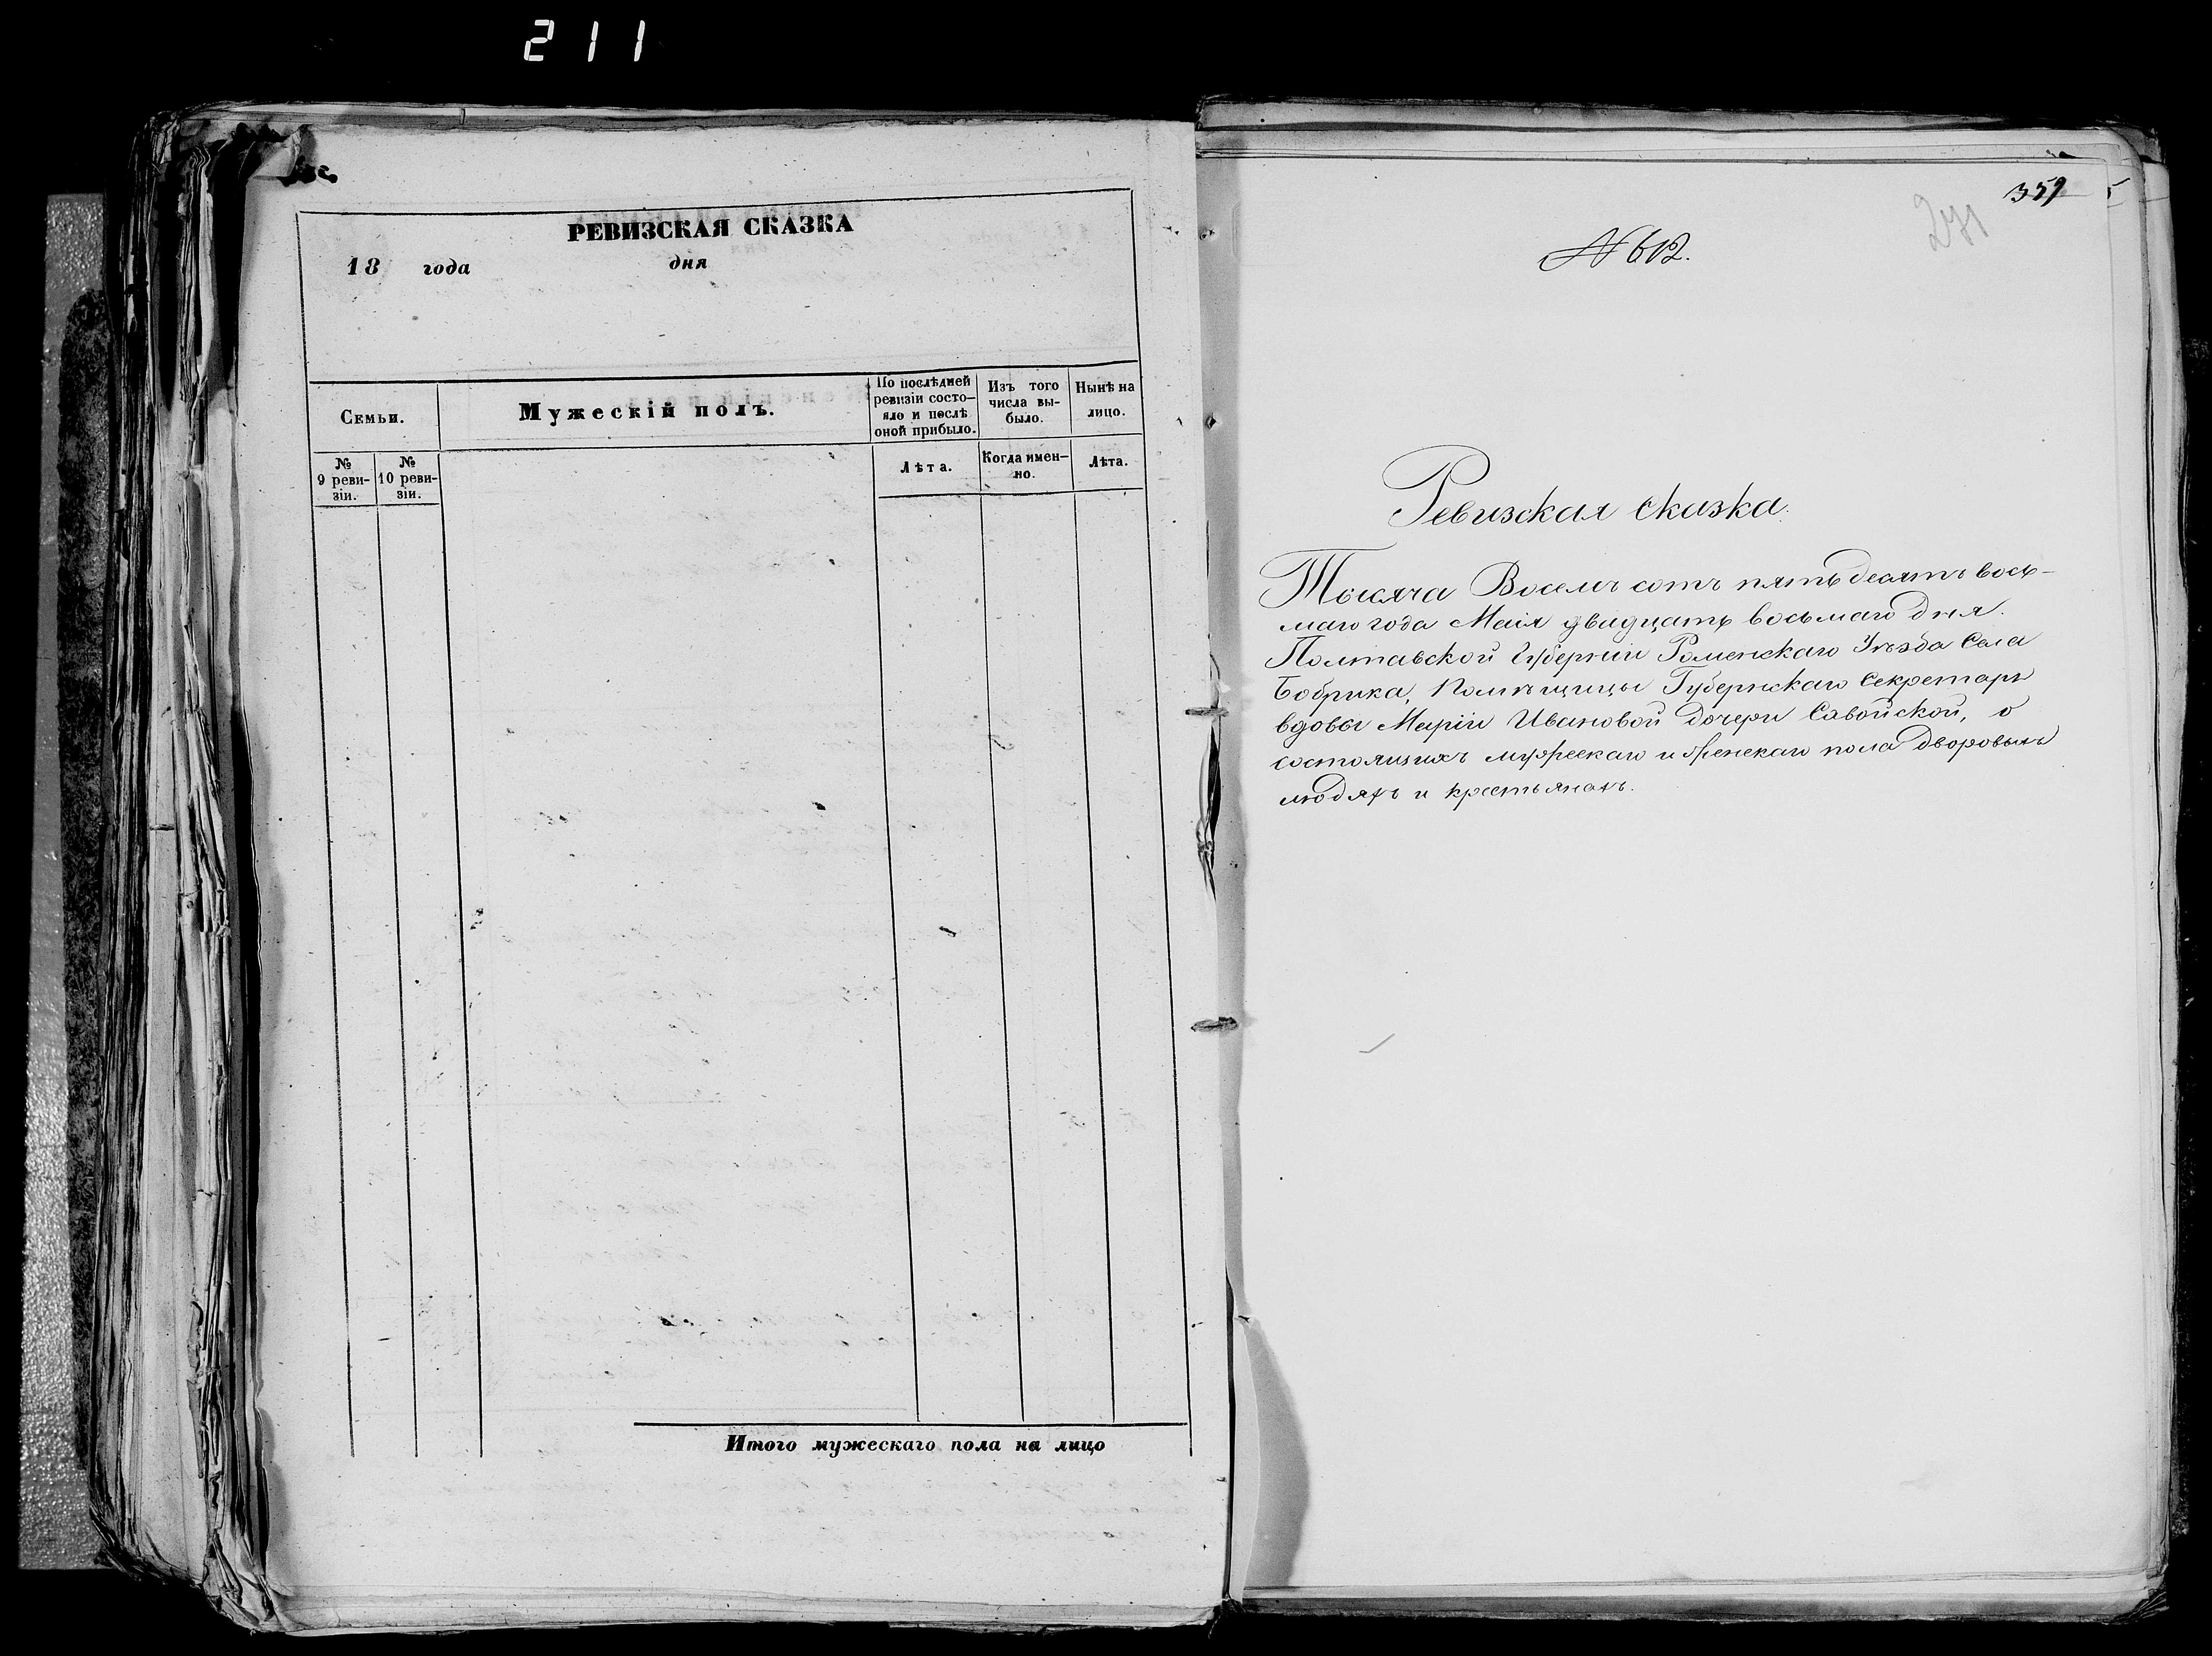 211
РЕВИЗСКАЯ СКАЗКА
18 года дня
Семьи.
Мужескій полъ.
По послѣдней ревизіи состо-
яло и послѣ
оной прибыло.
Изъ того
числа вы-
было.
Нынѣ на
лицо.
№
9 реви-
зіи.
№
10 реви-
зіи.
Лѣта.
Когда имен-
но.
Лѣта.
Итого мужескаго пола на лицо
359
271
№ 612.
Ревизская сказка.
Тысяча Восемь сотъ пятьдесятъ вось-
маго года Маія двадцать восьмаго дня.
Полтавской Губерніи Роменскаго Уѣзда Села
Бобрика, Помѣщицы Губернскаго Секретаря
вдовы Маріи Ивановой дочери Савойской, о
состоящихъ мужескаго и женскаго пола дворовыхъ
людяхъ и крестьянахъ.